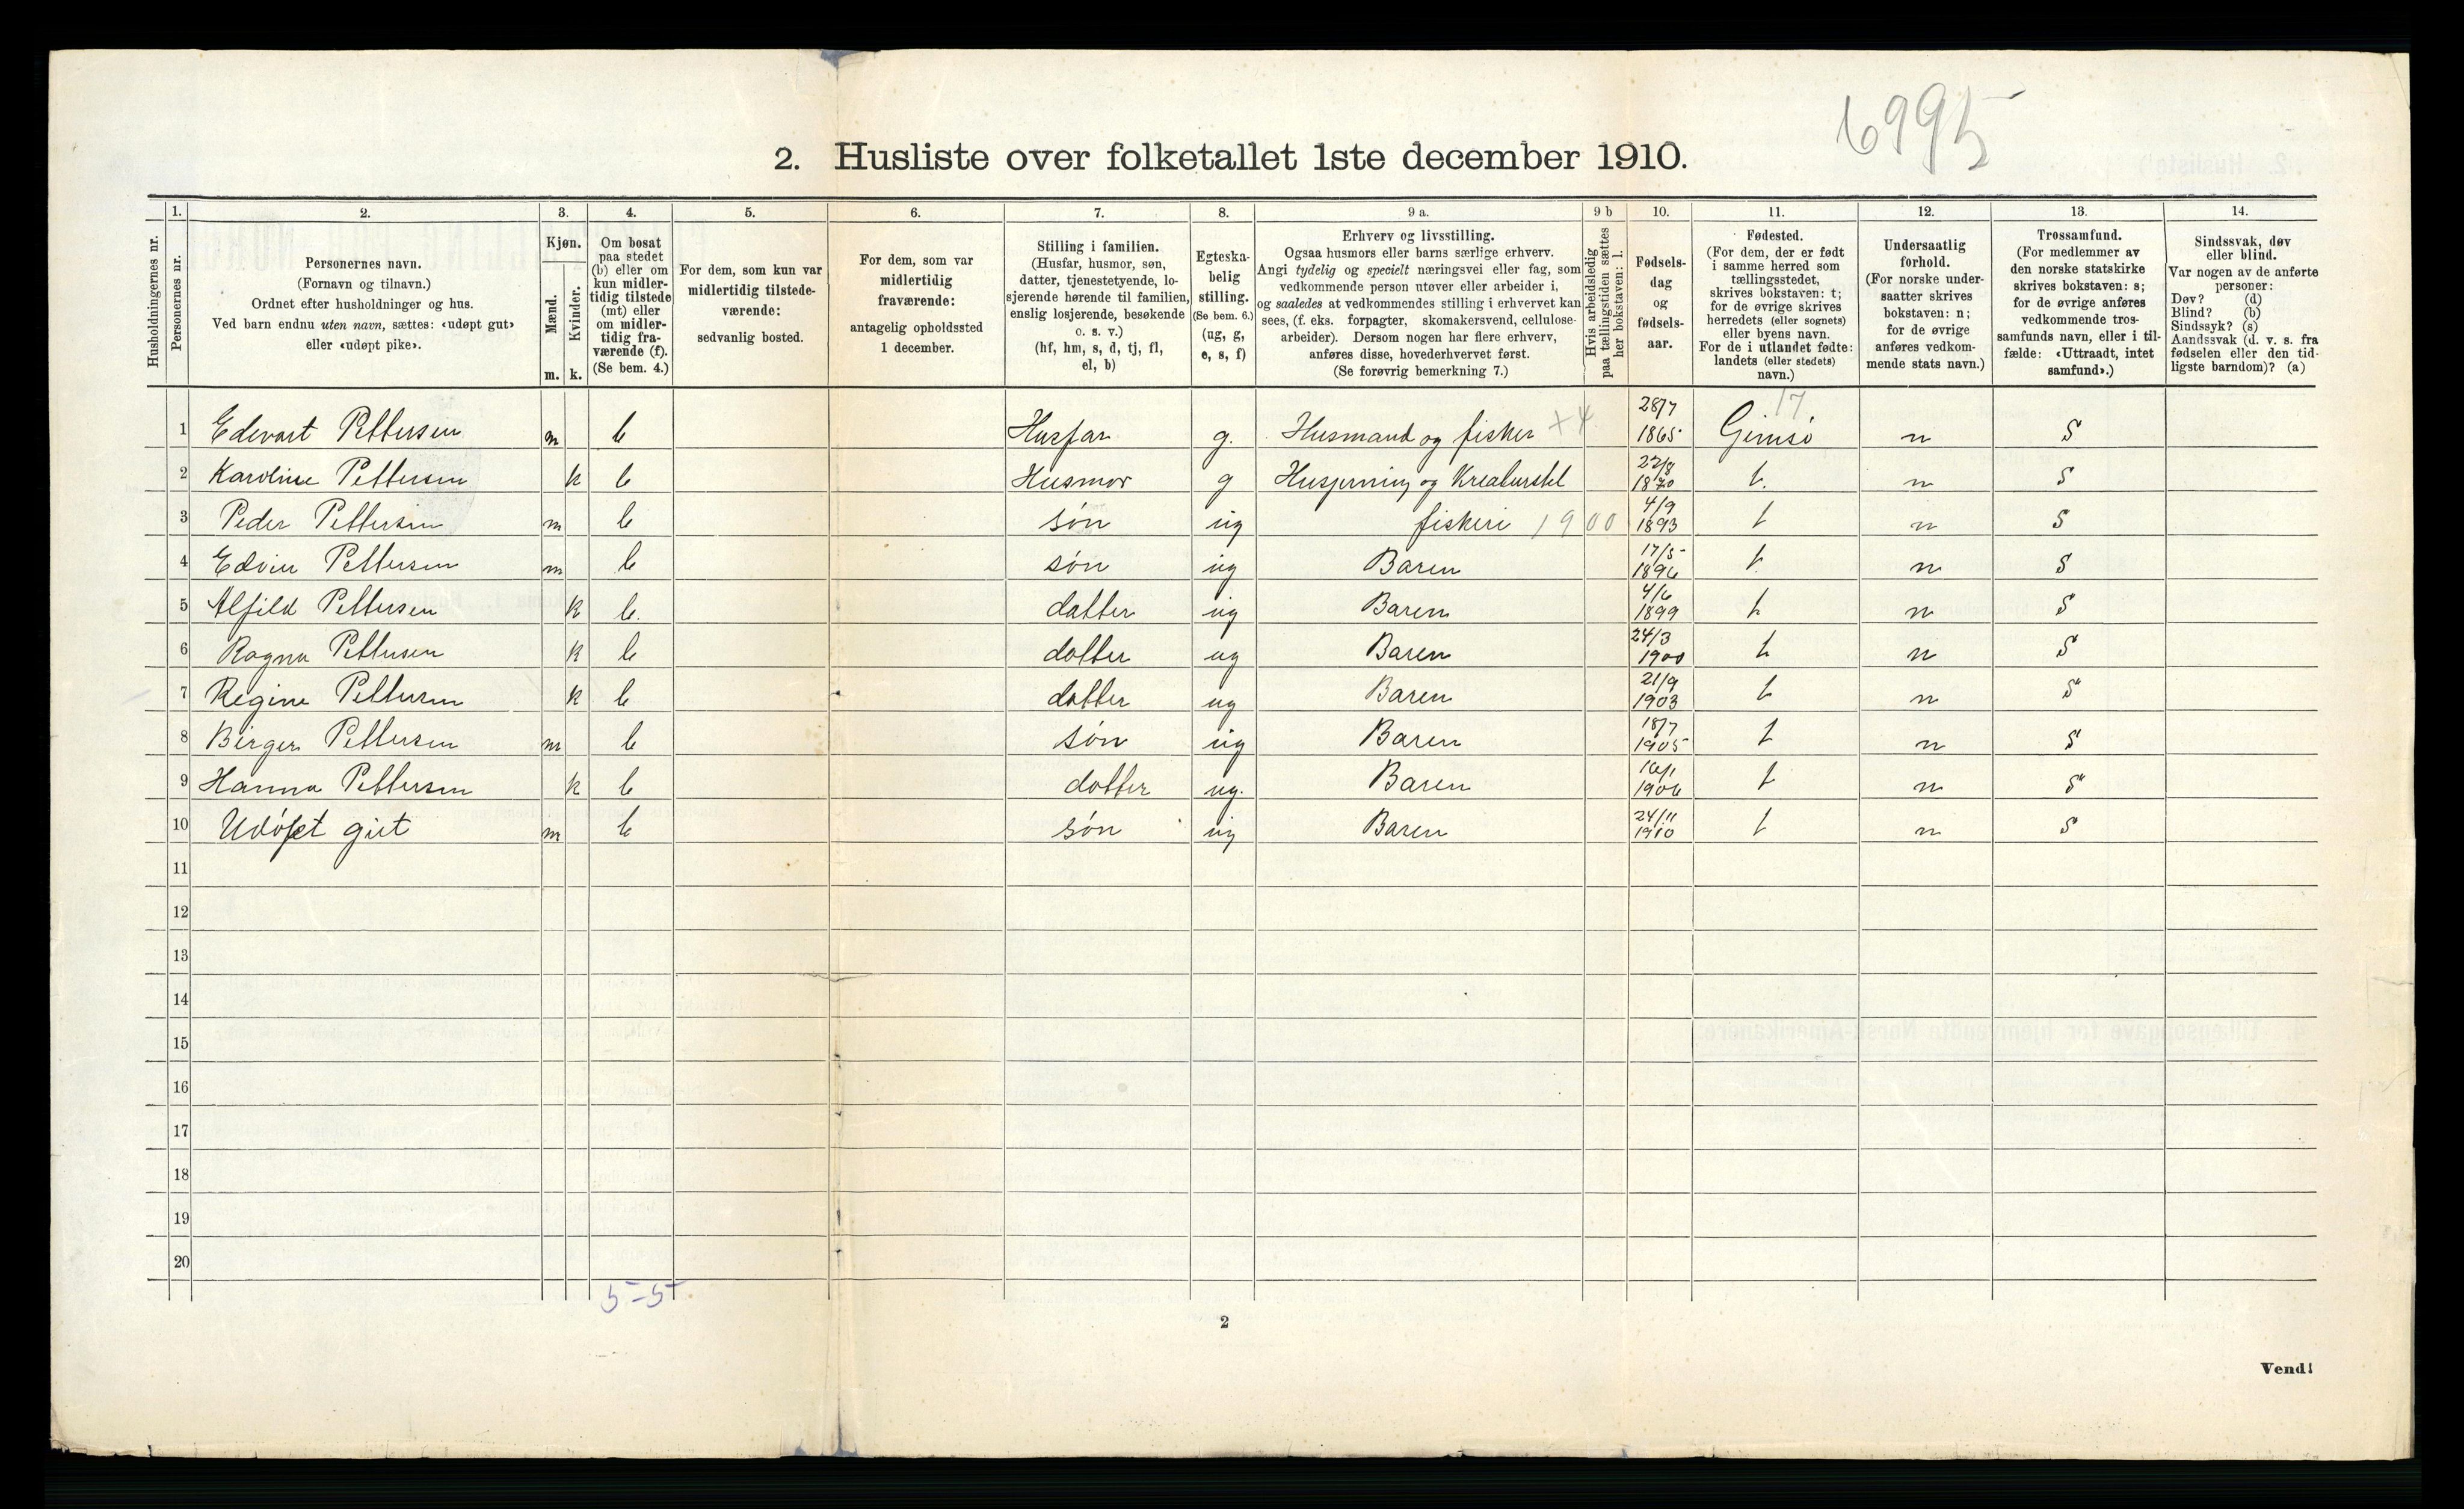 6995
2. Husliste over folketallet 1ste december 1910.
Husholdningernes nr.
1.
Personernes nr.
2.
Personernes navn.
(Fornavn og tilnavn.)
Ordnet efter husholdninger og hus.
Ved barn endnu uten navn, sættes: «udøpt gut»
eller «udøpt pike».
3.
Kjøn.
Mænd.
Kvinder.
m. k.
4.
Om bosat
paa stedet
(b) eller om
kun midler-
tidig tilstede
(mt) eller
om midler-
tidig fra-
værende (f).
(Se bem. 4.)
5.
For dem, som kun var
midlertidig tilstede-
værende:
sedvanlig bosted.
6.
For dem, som var
midlertidig
fraværende:
antagelig opholdssted
1 december.
7.
Stilling i familien.
(Husfar, husmor, søn,
datter, tjenestetyende, lo-
sjerende hørende til familien,
enslig losjerende, besøkende
o. s. v.)
(hf, hm, s, d, tj, fl,
el, b)
8.
Egteska-
belig
stilling.
(Se bem. 6.)
(ug, g,
e, s, f)
9 a.
Erhverv og livsstilling.
Ogsaa husmors eller barns særlige erhverv.
Angi tydelig og specielt næringsvei eller fag, som
vedkommende person utøver eller arbeider i,
og saaledes at vedkommendes stilling i erhvervet kan
sees, (f. eks. forpagter, skomakersvend, cellulose-
arbeider). Dersom nogen har flere erhverv,
anføres disse, hovederhvervet først.
(Se forøvrig bemerkning 7.)
9 b
Hvis arbeidsledig
paa tællingstiden sættes
her bokstaven: l.
10.
Fødsels-
dag
og
fødsels-
aar.
11.
Fødested.
(For dem, der er født
i samme herred som
tællingsstedet,
skrives bokstaven: t;
for de øvrige skrives
herredets (eller sognets)
eller byens navn.
For de i utlandet fødte:
landets (eller stedets)
navn.)
12.
Undersaatlig
forhold.
(For norske under-
saatter skrives
bokstaven: n;
for de øvrige
anføres vedkom-
mende stats navn.)
13.
Trossamfund.
(For medlemmer av
den norske statskirke
skrives bokstaven: s;
for de øvrige anføres
vedkommende tros-
samfunds navn, eller i til-
fælde: «Uttraadt, intet
samfund».)
14.
Sindssvak, døv
eller blind.
Var nogen av de anførte
personer:
Døv? (d)
Blind? (b)
Sindssyk? (s)
Aandssvak (d. v. s. fra
fødselen eller den tid-
ligste barndom)? (a)
1 Edevart Pettersen m b Husfar g. Husmand og fisker x4 28/7 1865 17 Gimsø n S
2 Karoline Pettersen k b Husmor g Husgerning og Kreaturstel 22/8 1870 t. n S
3 Peder Pettersen m b søn ug fiskeri 1900 4/9 1893 t n S
4 Edvin Pettersen m b søn ug Baren 17/5 1896 t n S
5 Alfild Pettersen k b. datter ug Baren 4/6 1899 t n S
6 Ragna Pettersen k b datter ug Baren 24/3 1900 t n S
7 Regine Pettersen k b datter ug Baren 21/9 1903 t n S
8 Birger Pettersen m b søn ug Baren 18/7 1905 t n S
9 Hanna Pettersen k b datter ug. Baren 16/1 1906 t n S
10 Udøpt gut m b søn ug Baren 24/11 1910 t n S
11
12
13
14
15
16
17
18
19
20
5-5
2
Vend!